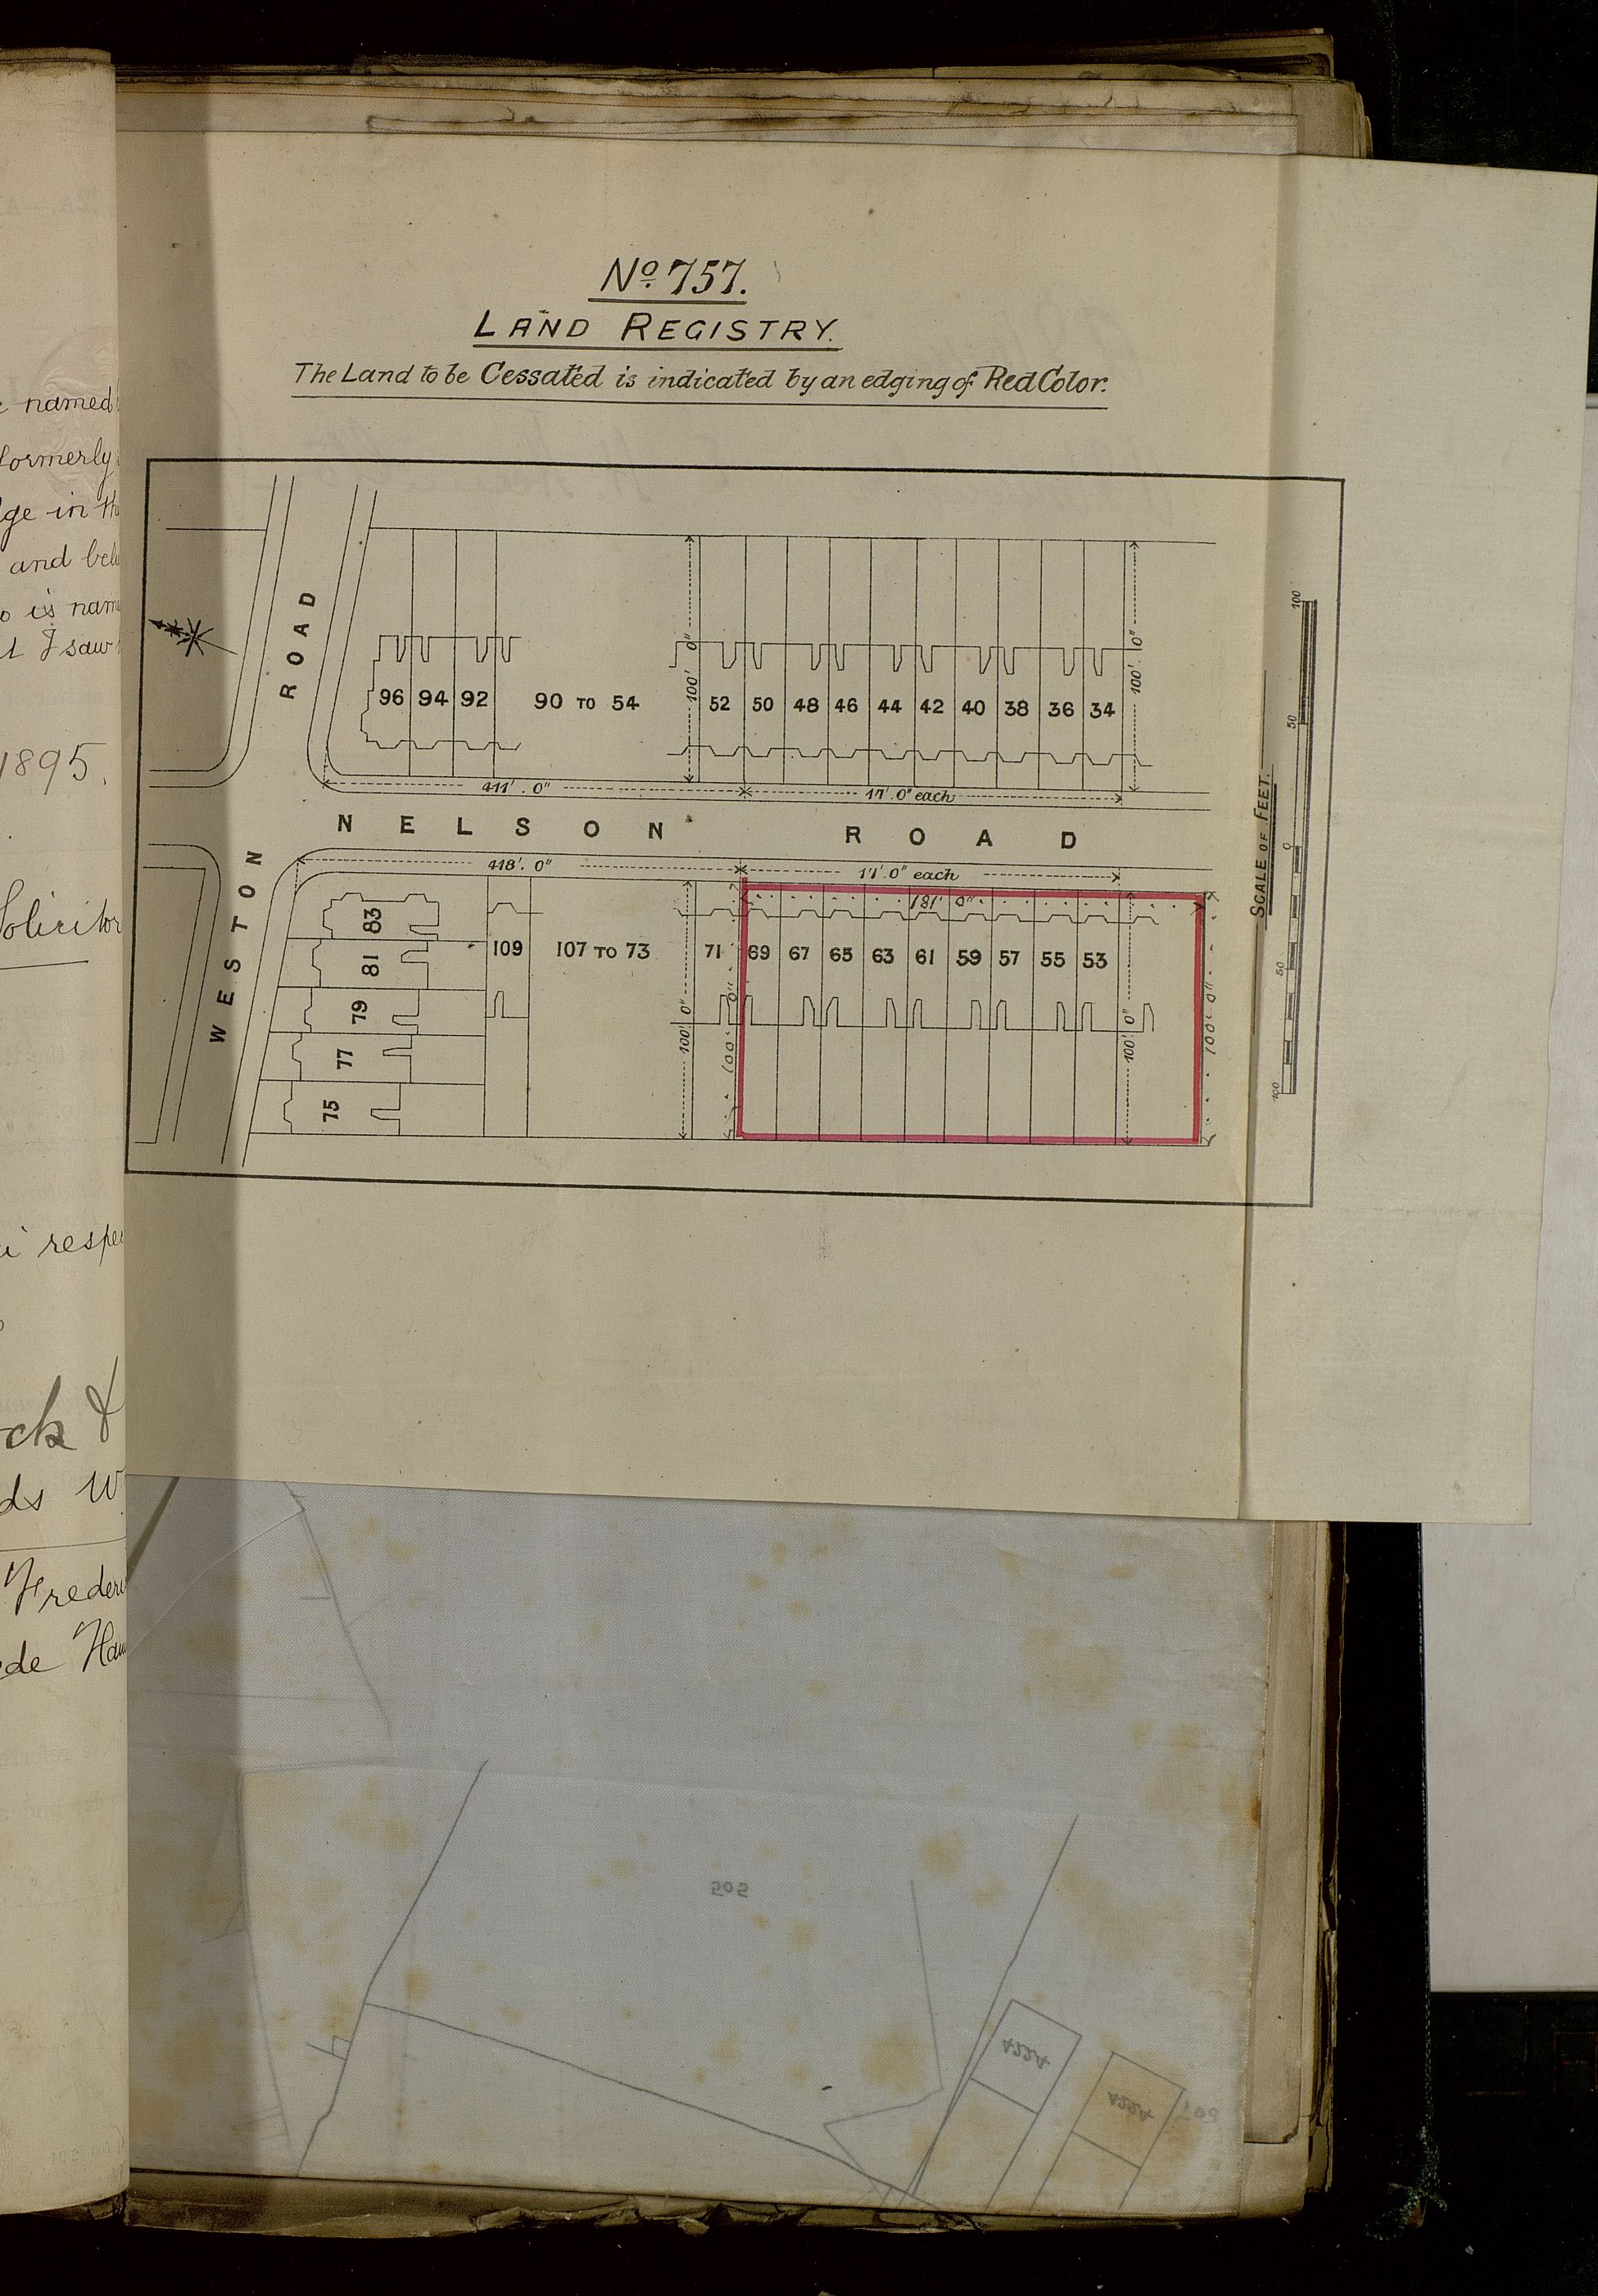 No 757.
LAND REGISTRY.
The Land to be Cessated is indicated by an edging of Red Color.
named
formerly
ge in the
and bel
is nam
I saw
1895.
Solicitor
respe
ck &
ds W
Frederi
de Ham
ROAD
WESTON
96 94 92 90 TO 54 52 50 48 46 44 42 40 38 36 34
100'. 0"
100'. 0"
411'. 0" 17'. 0" each
NELSON ROAD
418'. 0" 17'. 0" each
181' 0"
83 109 107 TO 73 71 69 67 65 63 61 59 57 55 53
81
79
77
75
100'. 0"
100' 0"
100'. 0"
100' 0"
SCALE OF FEET.
100
50
0
50
100
505
422A
422A